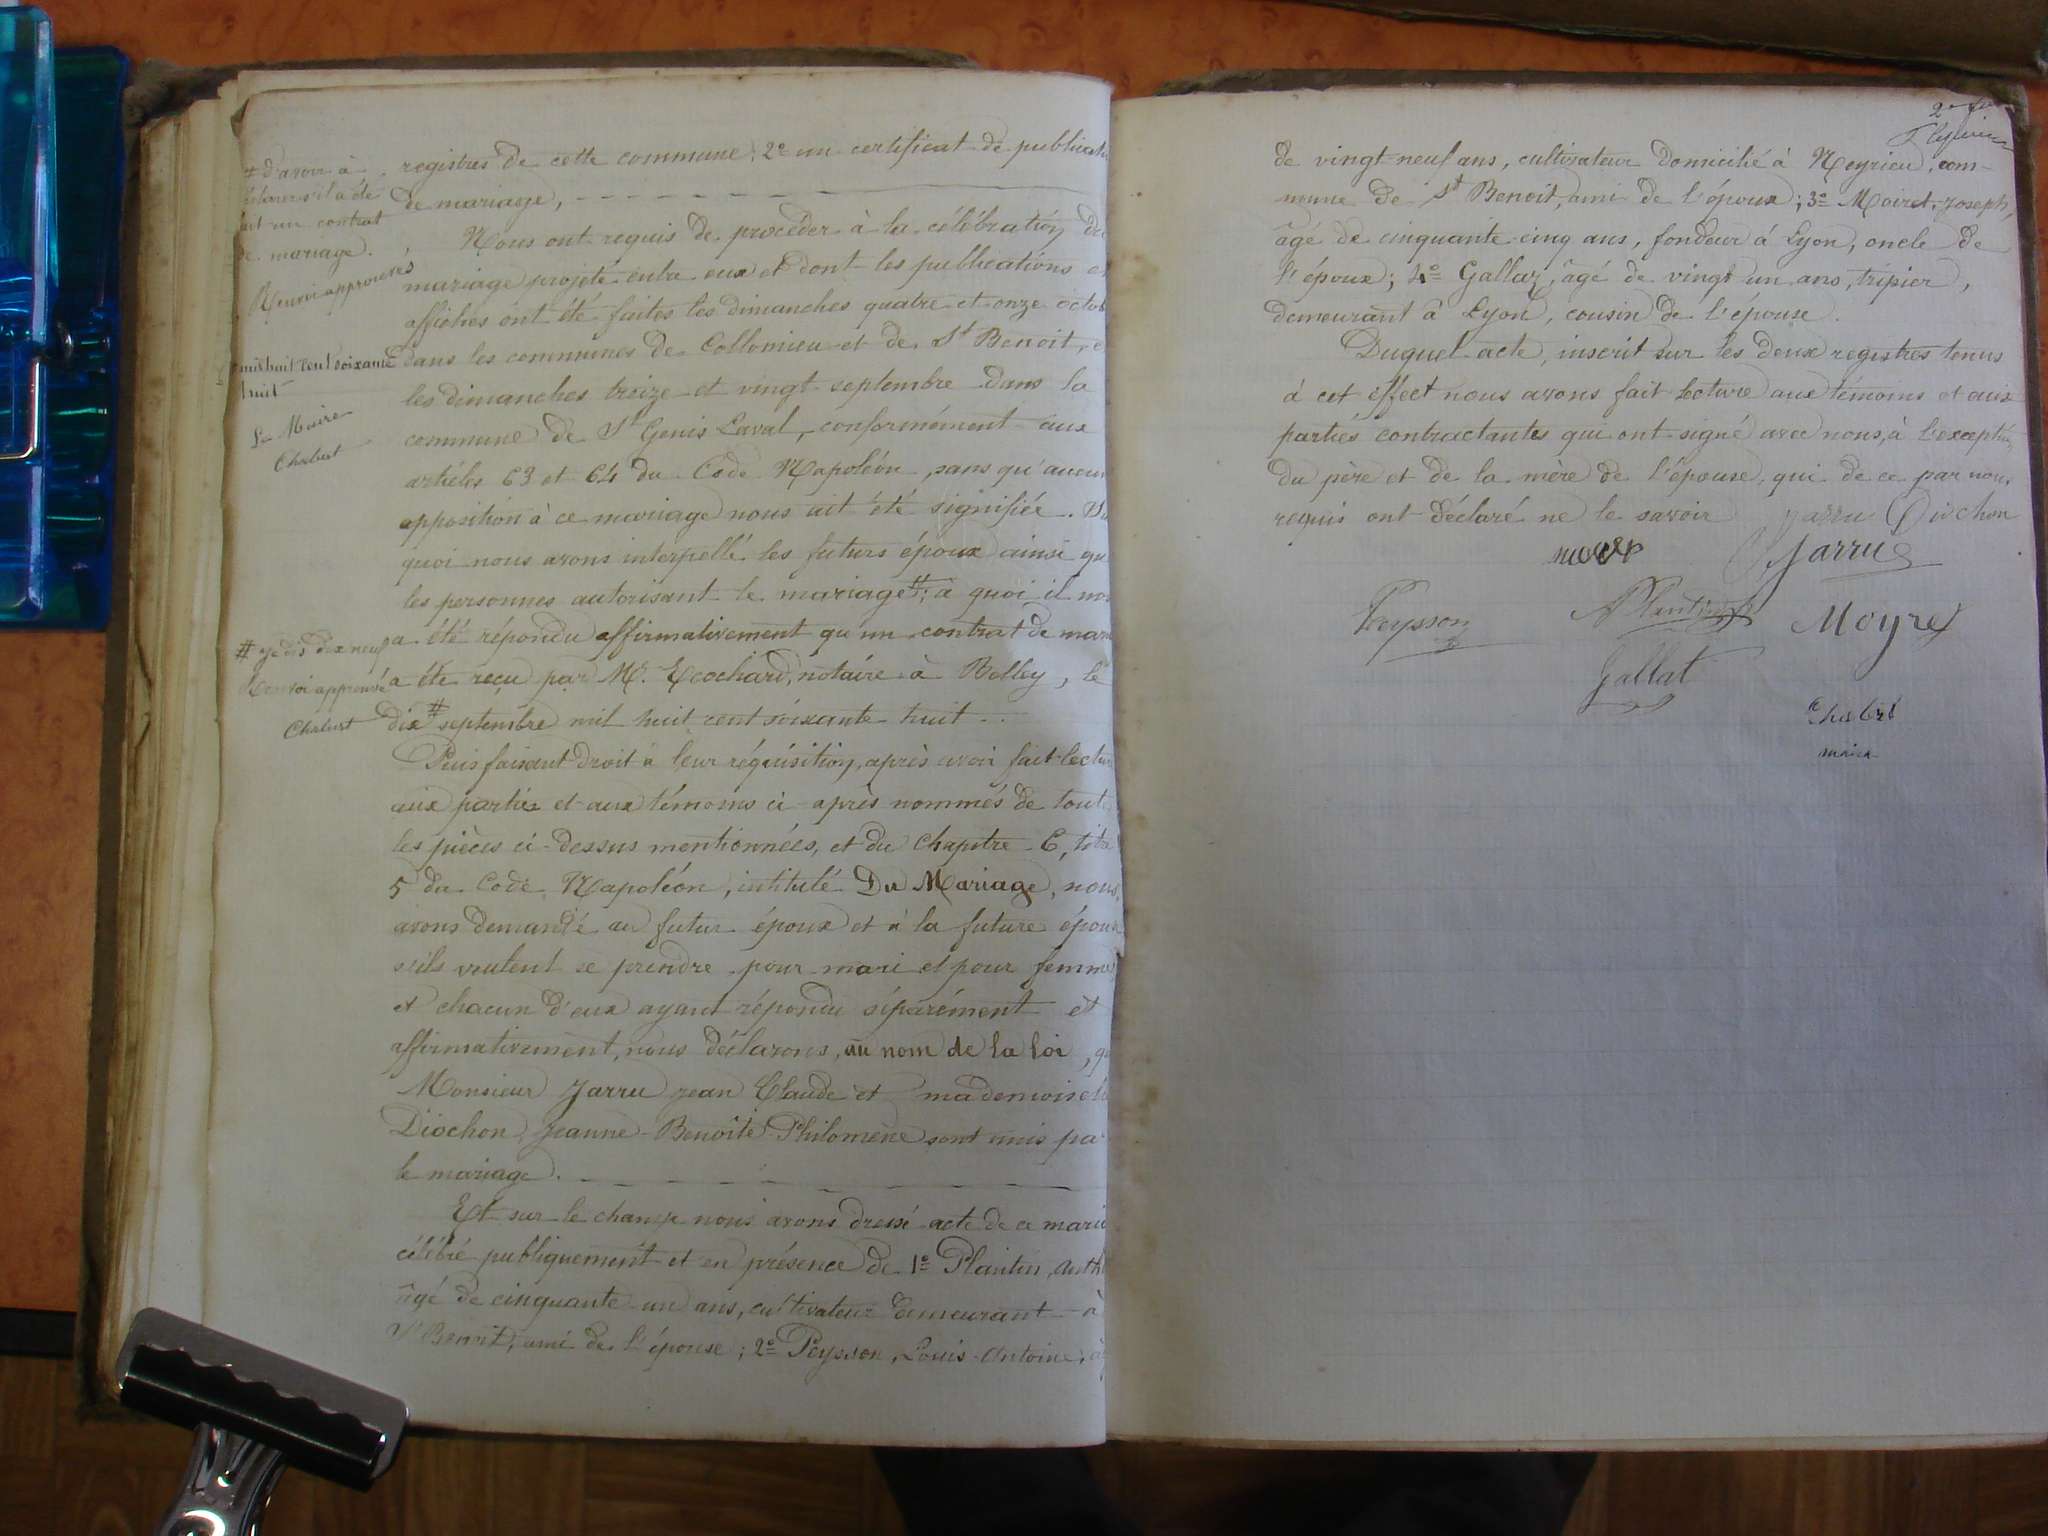 # d'avoir à
déclarer s'il a été
fait un contrat
de mariage.
Renvoi approuvé
mil huit cent soixante
huit
Le Maire
Chabert
# ge dis dix neuf
Renvoi approuvé
Chabert
registres de cette commune; 2º un certificat de publicati
de mariage,
Nous ont requis de procéder à la célébration du
mariage projeté entre eux et dont les publications et
affiches ont été faites les dimanches quatre et onze octob
dans les communes de Collomieu et de St Benoit, e
les dimanches treize et vingt septembre dans la
commune de St Genis Laval, conformément aux
articles 63 et 64 du Code Napoléon, sans qu'aucun
opposition à ce mariage nous ait été signifiée. Su
quoi nous avons interpellé les futurs époux ainsi que
les personnes autorisant le mariage #; à quoi il nou
a été répondu affirmativement qu'un contrat de mari
a été reçu par M. Ecochard, notaire à Belley, le
dix # septembre mil huit cent soixante-huit.
Puis faisant droit à leur réquisition, après avoir fait lectu
aux parties et aux témoins ci-après nommés de toute
les pièces ci-dessus mentionnées, et du chapitre 6, titre
5 du Code Napoléon, intitulé Du Mariage, nous
avons demandé au futur époux et à la future épous
s'ils veulent se prendre pour mari et pour femme
et chacun d'eux ayant répondu séparément et
affirmativement, nous déclarons, au nom de la loi, qu
Monsieur Jarru Jean Claude et mademoisell
Diochon Jeanne-Benoite Philomène sont unis pa
le mariage.
Et sur le champ nous avons dressé acte de ce maria
célébré publiquement et en présence de 1º Plantin, Anth
âgé de cinquante-un ans, cultivateur demeurant à
St Benoit, ami de l'épouse; 2º Peysson, Louis-Antoine, â
2e
de vingt-neuf ans, cultivateur domicilié à Meyrieu, com-
mune de St Benoit, ami de l'époux; 3º Moiret, Joseph,
âgé de cinquante-cinq ans, fondeur à Lyon, oncle de
l'époux; 4º Gallay, âgé de vingt un ans, tripier,
demeurant à Lyon, cousin de l'épouse.
Duquel acte, inscrit sur les deux registres tenus
à cet effect nous avons fait lecture aux témoins et aux
parties contractantes qui ont signé avec nous, à l'excepti
du père et de la mère de l'épouse, qui de ce par nous
requis ont déclaré ne le savoir Jarru Diochon
Jarru
Peysson Plantin Moyret
Gallat
Chabert
maire